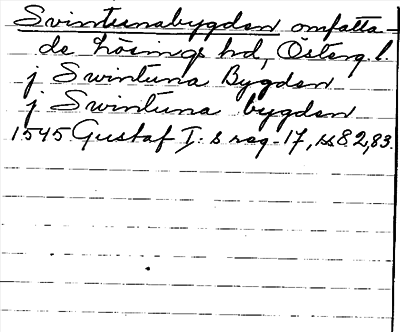 Svintunabygden omfatta-
de Lösings hd, Österg. l.
j Swintuna Bygden
j Swintuna bygden
1545 Gustaf I:s reg. 17, ss 82, 83.